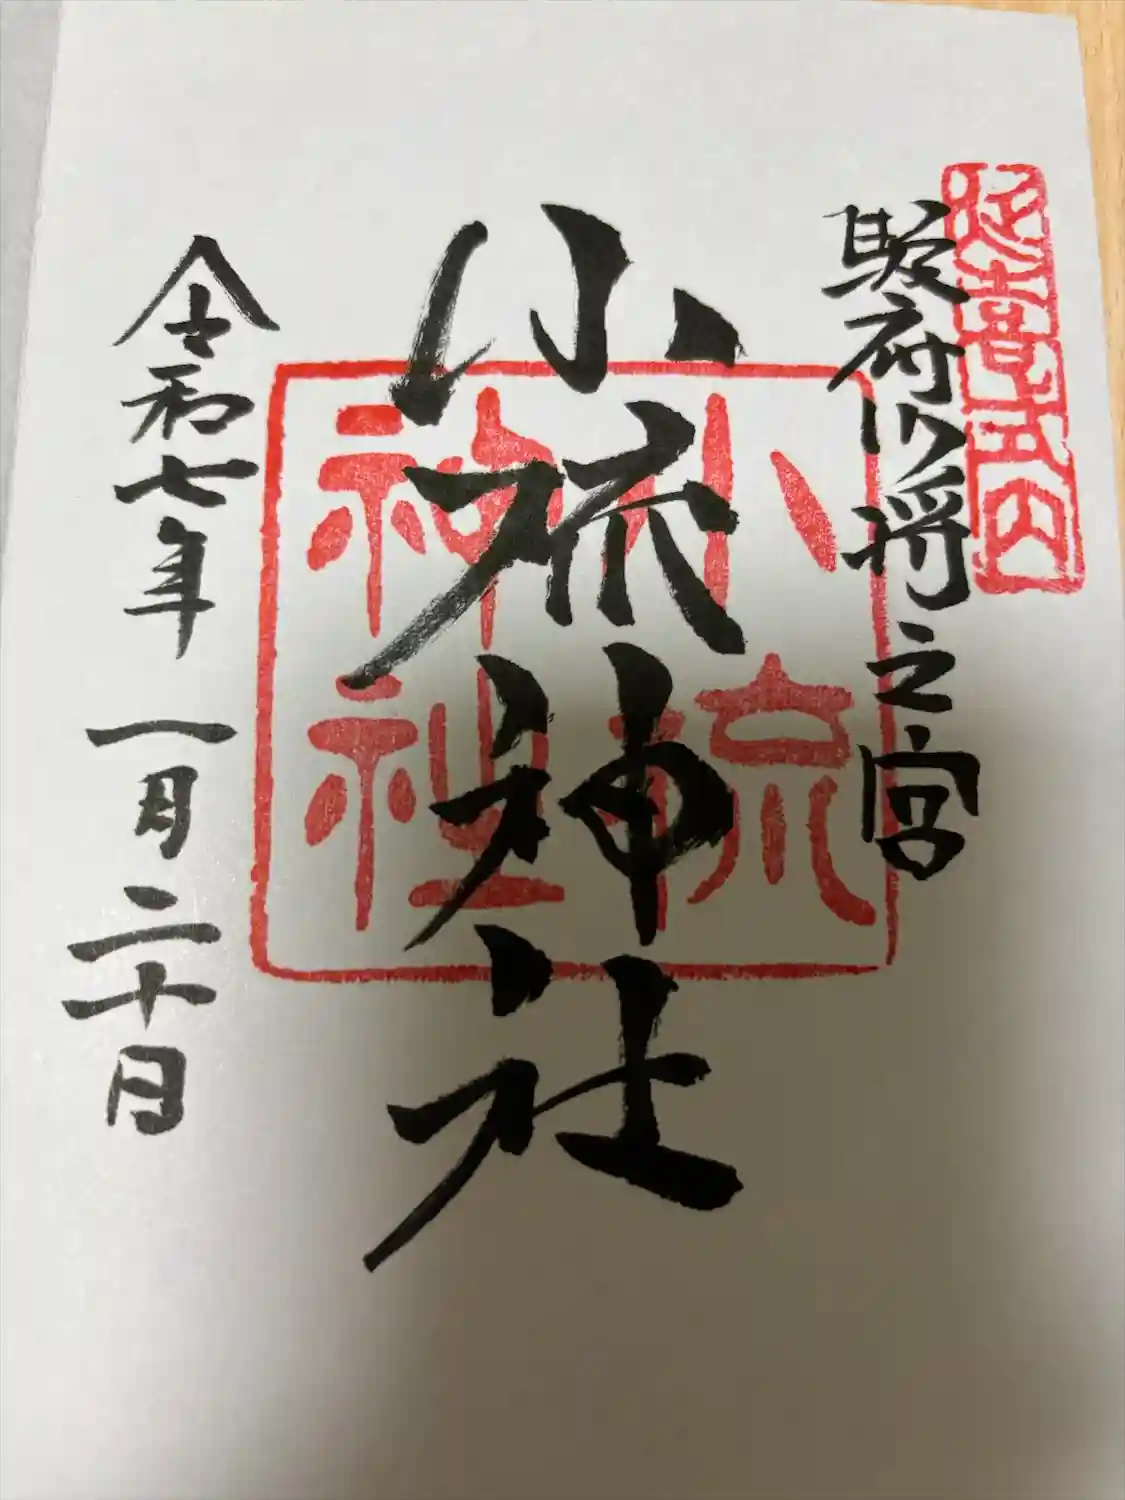 延喜式内
駿府少将之宮
小梳神社
小梳
神社
令和七年 一月二十日